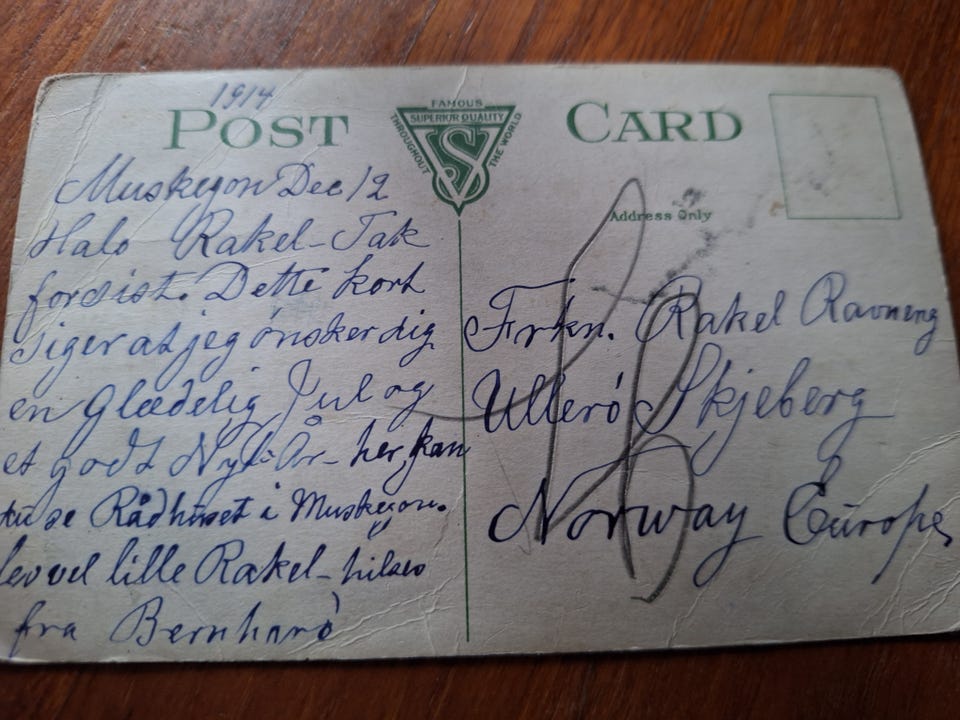 1914
POST CARD
FAMOUS
SUPERIOR QUALITY
THROUGHOUT
THE WORLD
S
Muskegon Dec 12
Halo Rakel - Tak
for sist. Dette kort
siger at jeg ønsker dig
en Glædelig Jul og
et godt Nyt-År - her kan
du se Rådhuset i Muskegon.
lev vel lille Rakel - hilsen
fra Bernhard
Address Only
Frkn. Rakel Ravneng
Ullerö Skjeberg
Norway Europe